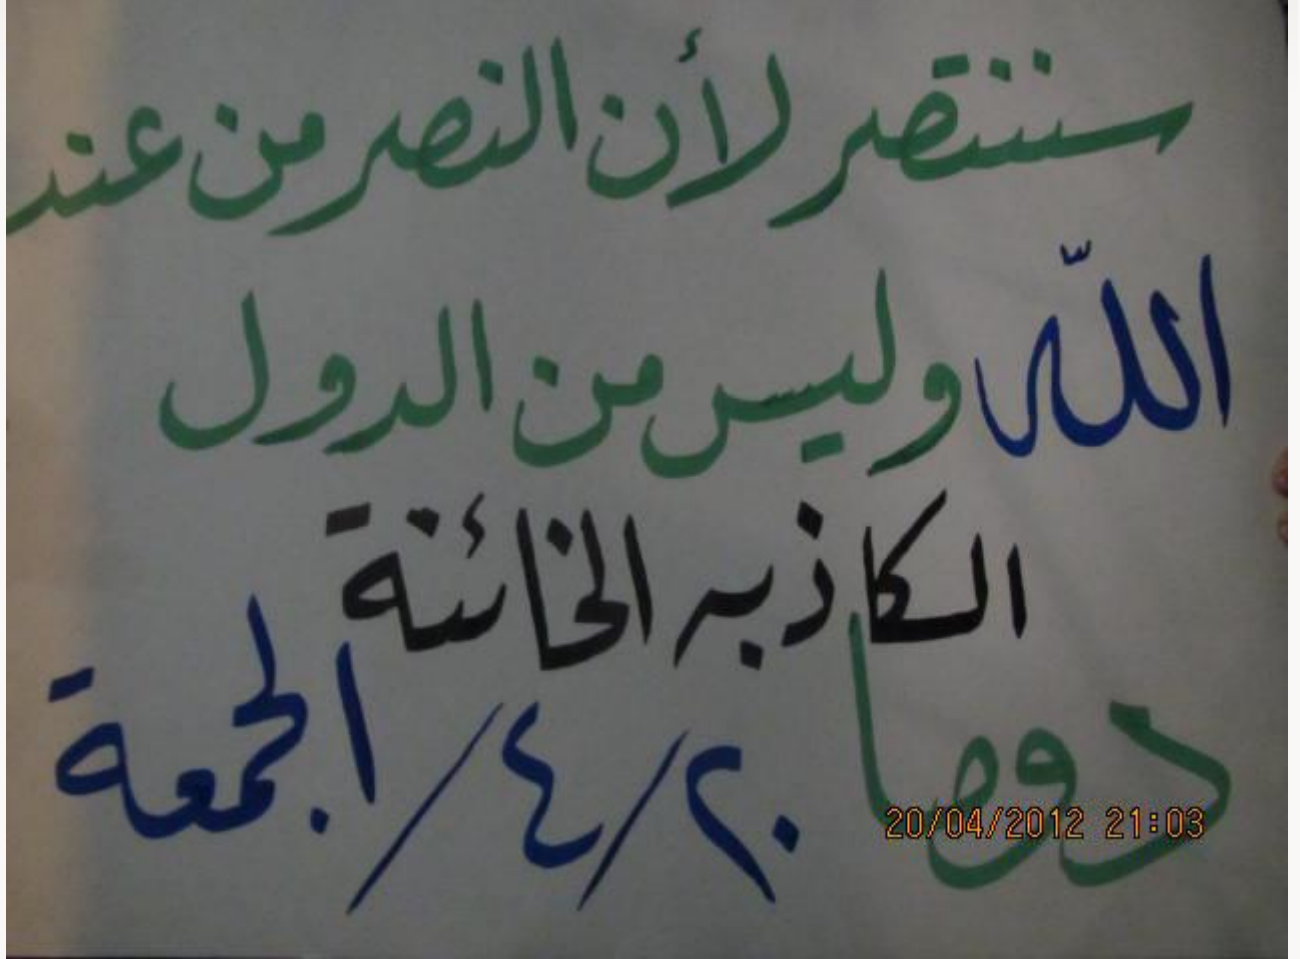 سننتصر لأن النصر من عند
الله وليس من الدول
الكاذبه الخائنة
دوما ٢٠/٤/ الجمعة
20/04/2012 21:03